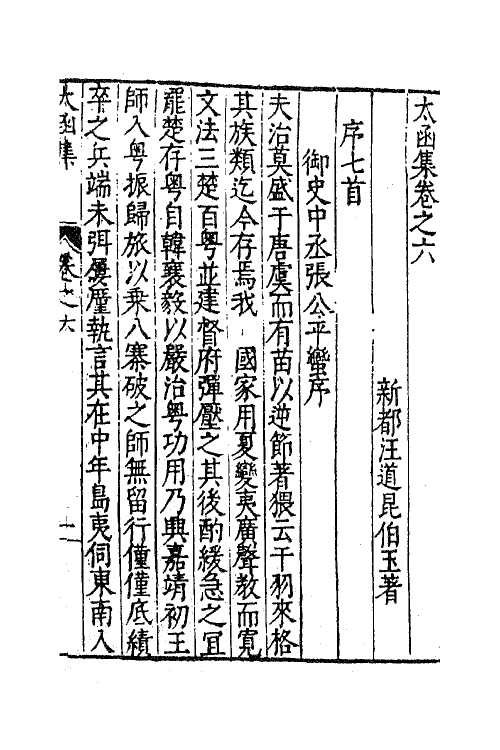 太函集卷之六
新都汪道昆伯玉著
序七首
御史中丞張公平蠻序
夫治莫盛于唐虞而有苗以逆節著猥云干羽來格
其族類迄今存焉我 國家用夏變夷廣聲教而寛
文法三楚百粤並建督府彈壓之其後酌緩急之冝
罷楚存粤自韓襄毅以嚴治粤功用乃興嘉靖初王
師入粤振歸旅以乘八寨破之師無留行僅僅底績
卒之兵端未弭屢廑執言其在中年島夷伺東南入
太函集 卷之六 一